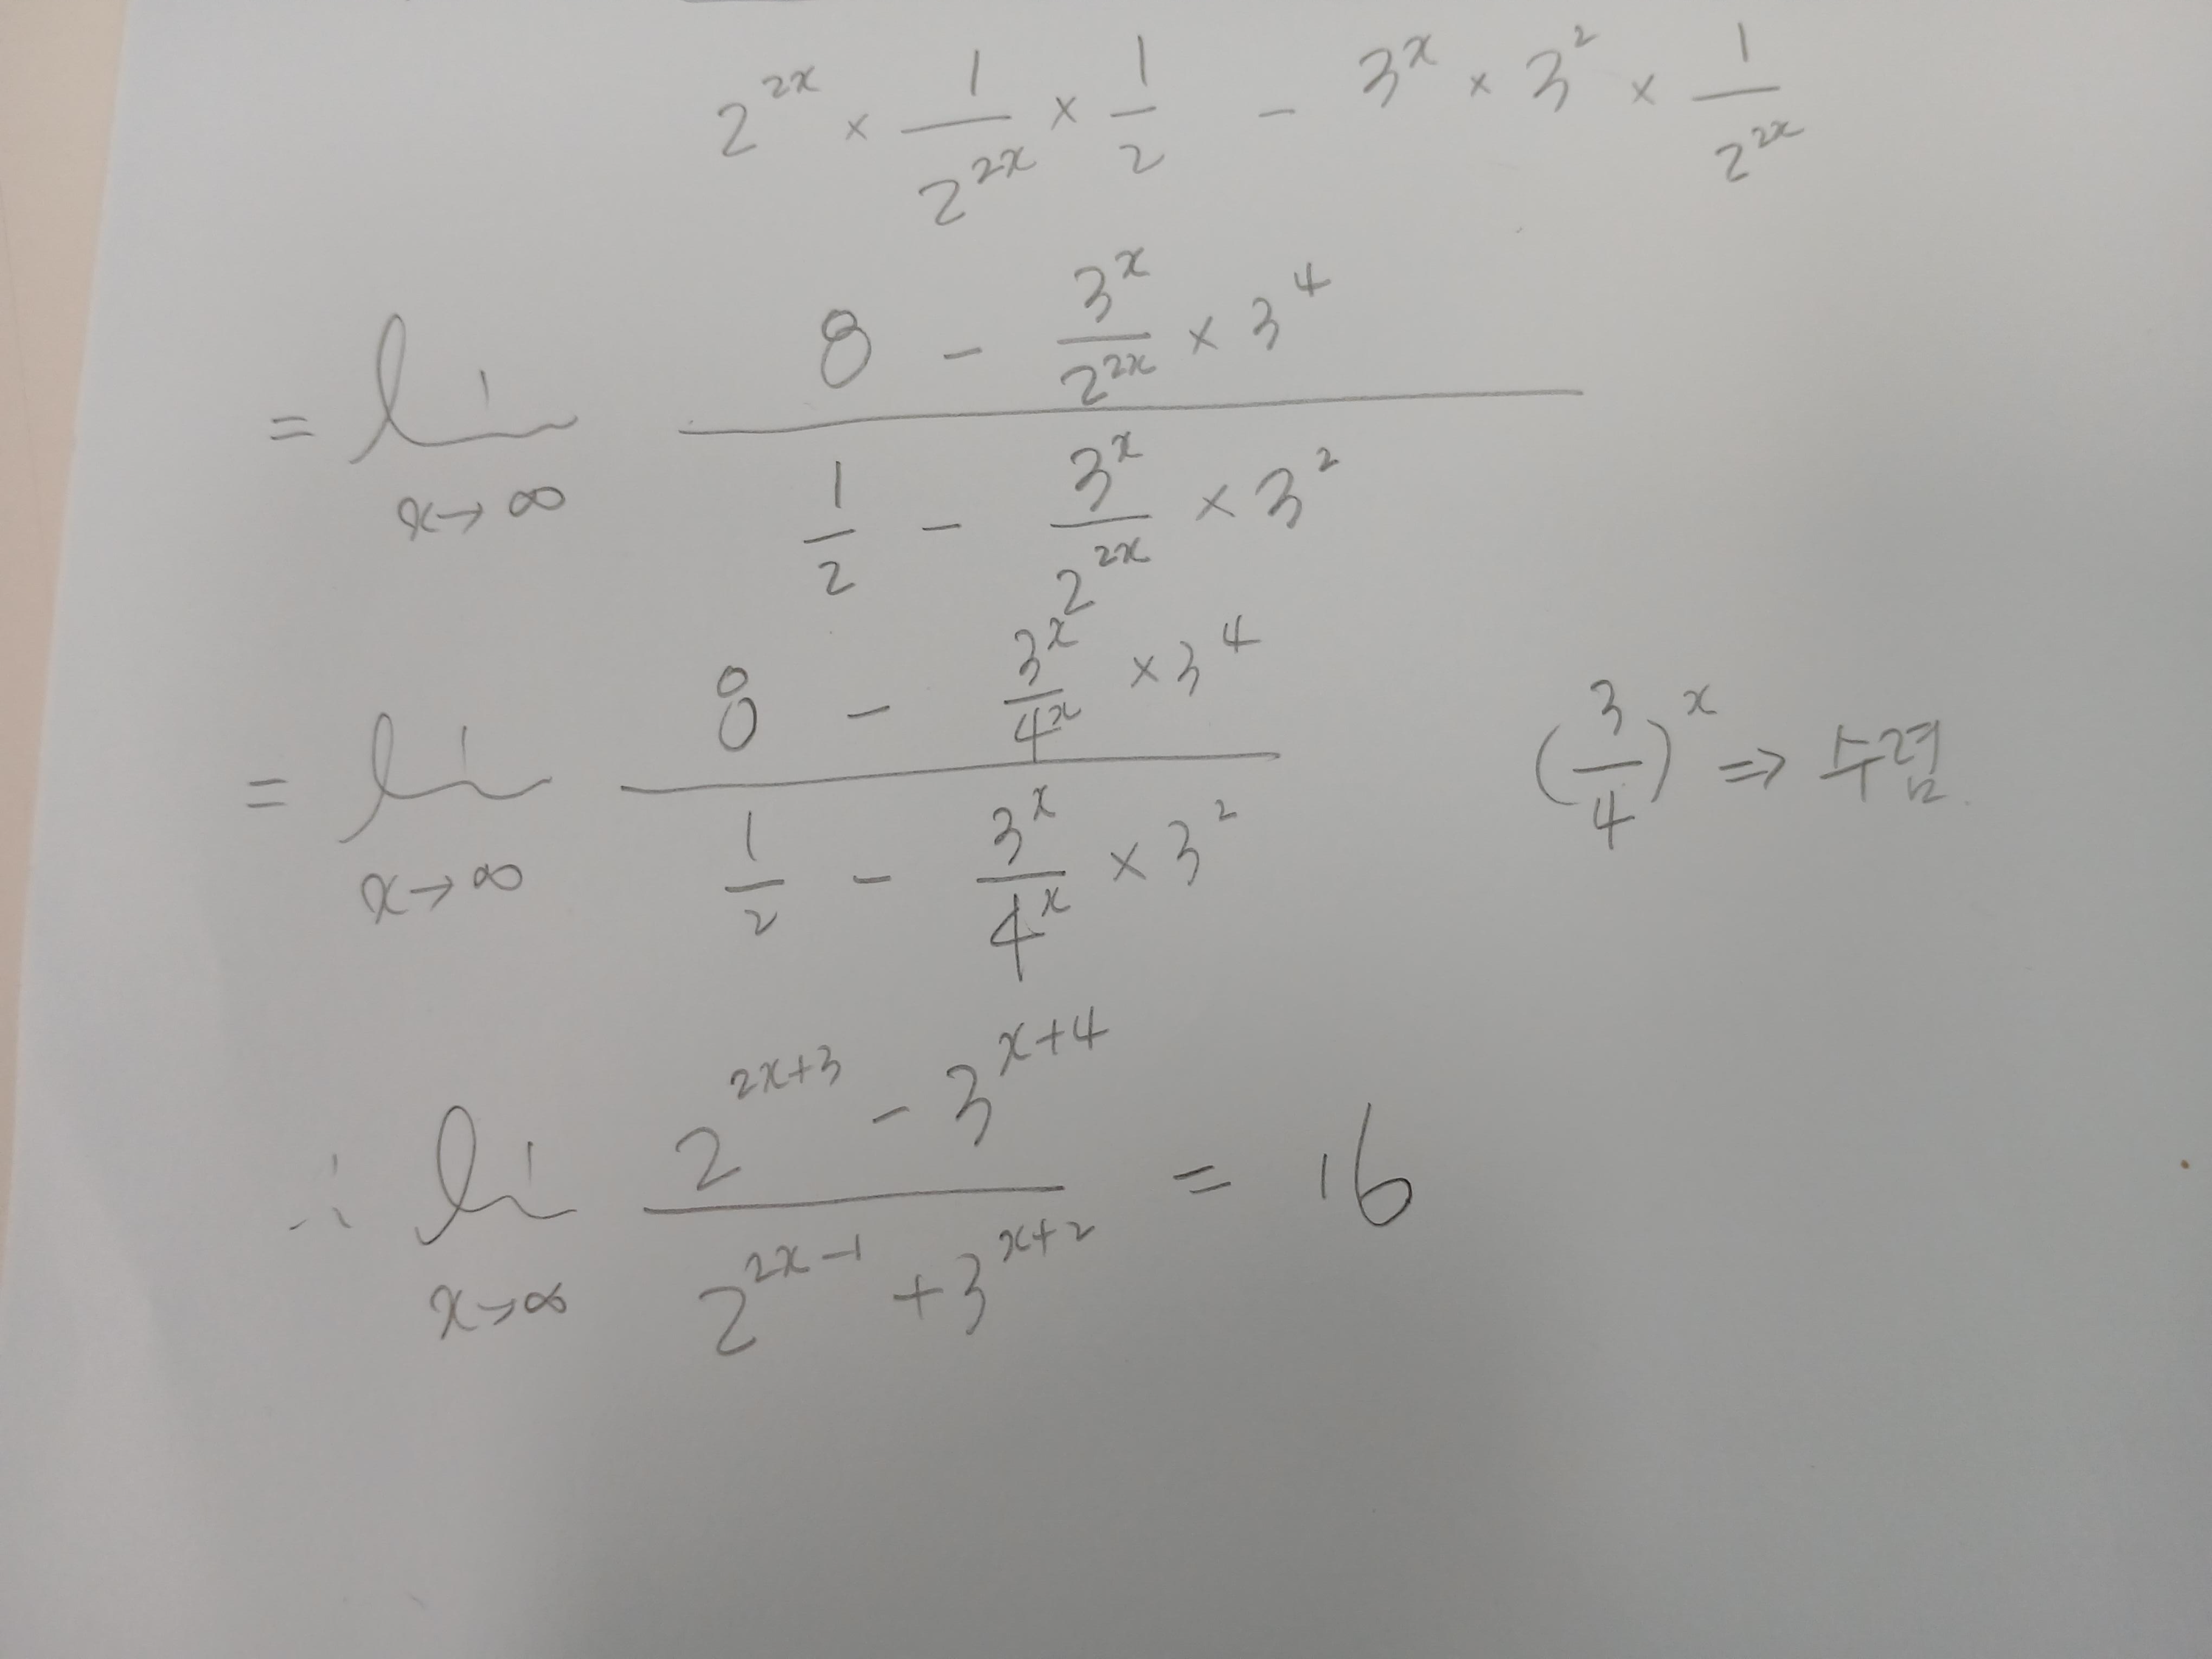 2^{2x} × \frac{1}{2^{2x}} × \frac{1}{2} - 3^x × 3^2 × \frac{1}{2^{2x}}
= \lim_{x→∞} \frac{8 - \frac{3^x}{2^{2x}} × 3^4}{\frac{1}{2} - \frac{3^x}{2^{2x}} × 3^2}
= \lim_{x→∞} \frac{8 - \frac{3^x}{4^x} × 3^4}{\frac{1}{2} - \frac{3^x}{4^x} × 3^2} (\frac{3}{4})^x ⇒ 수렴.
∴ \lim_{x→∞} \frac{2^{2x+3} - 3^{x+4}}{2^{2x-1} + 3^{x+2}} = 16